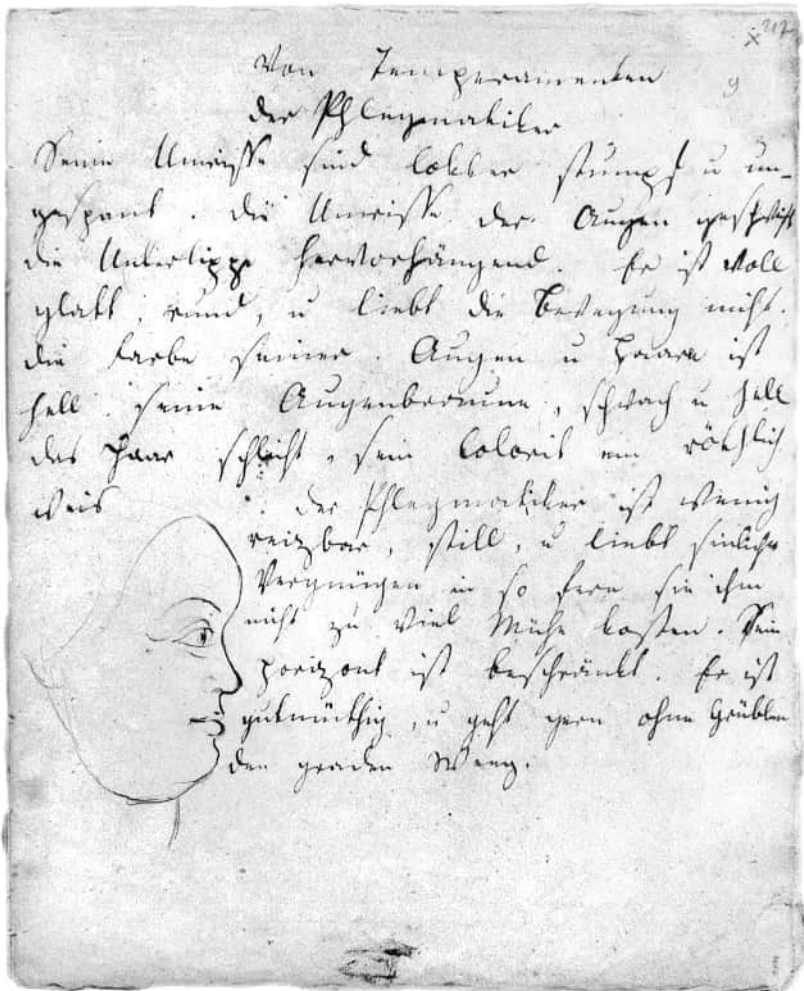 217
9
Von Temperamenten
der Phlegmatiker
Seine Umrisse sind lokker stumpf u un-
gespant. die Umrisse der Augen geschweift
die Unterlippe hervorhängend. Er ist voll
glatt, rund, u liebt die Bewegung nicht.
die Farbe seiner Augen u Haare ist
hell. seine Augenbraune, schwach u hell
das Haar schlicht, sein Colorit ein röthlich
weis
der Phlegmatiker ist wenig
reitzbar, still, u liebt sinliche
Vergnügen in so fern sie ihm
nicht zu viel Mühe kosten. Sein
Horizont ist beschränkt. Er ist
gutmüthig, u geht gern ohne Grüblen
den graden Weeg.